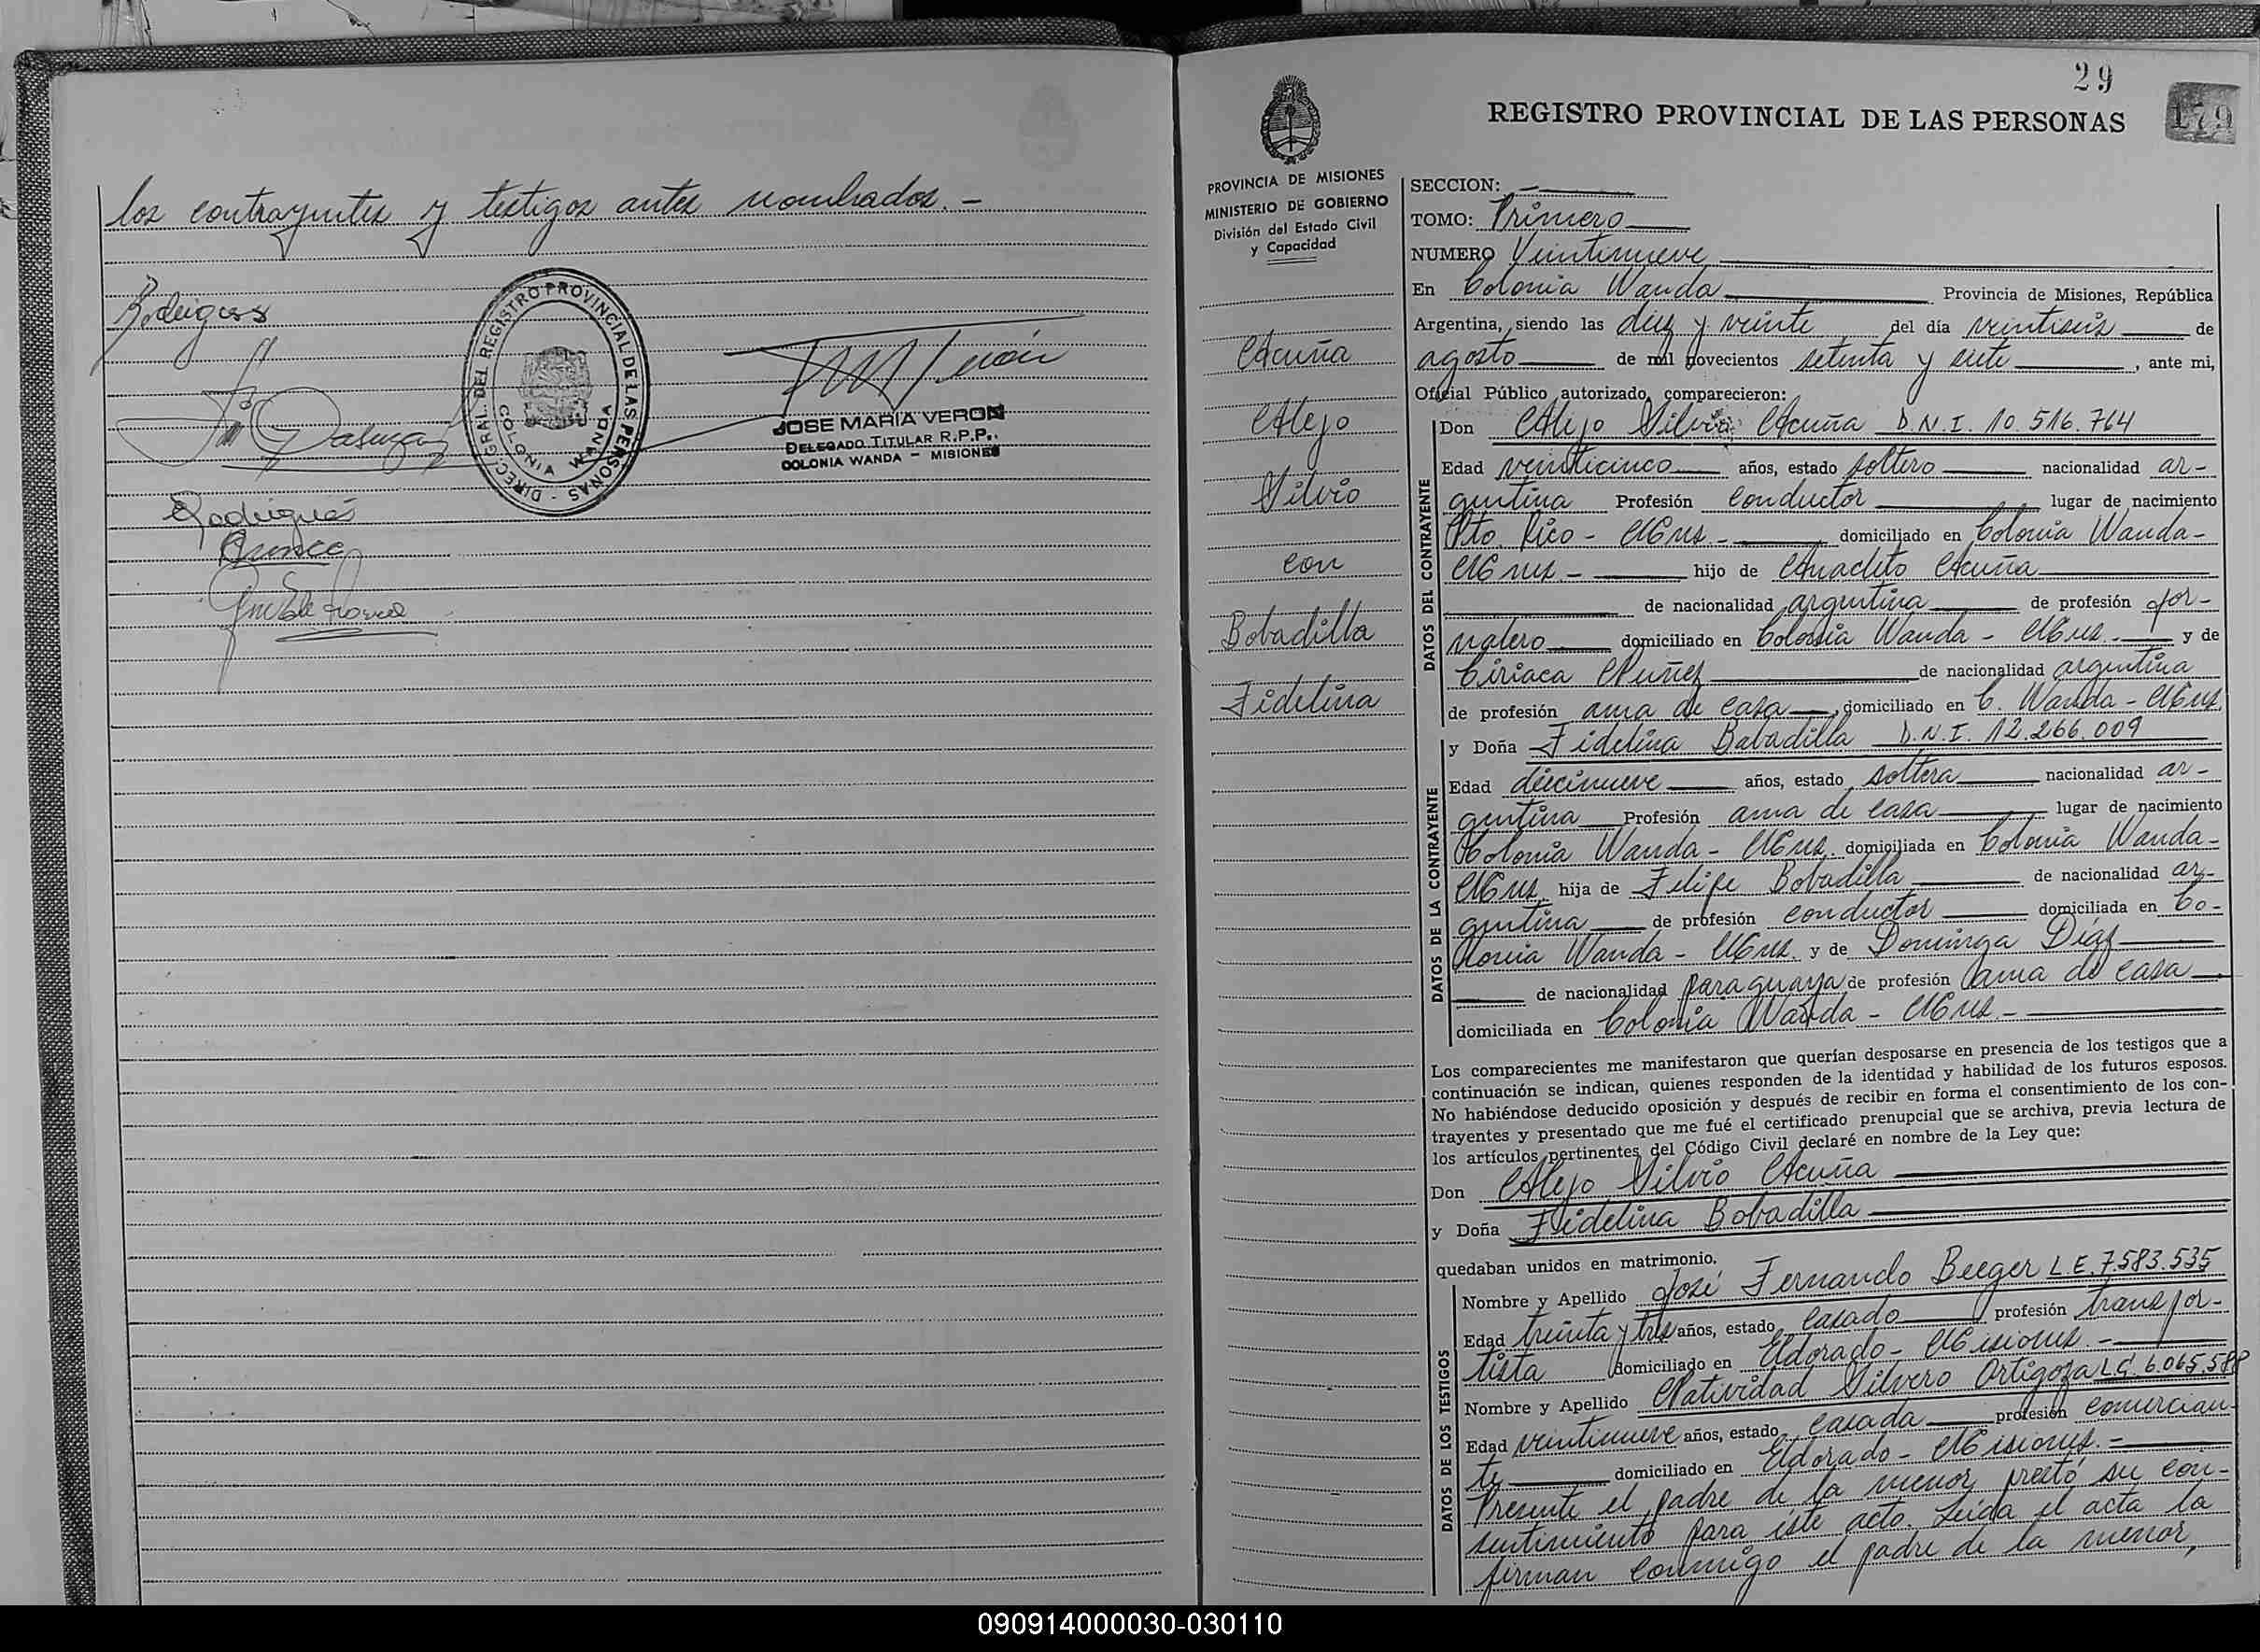 los contrayentes y testigos antes nombrados.-
DIREC. GRAL. DEL REGISTRO PROVINCIAL DE LAS PERSONAS -
COLONIA WANDA
JOSE MARIA VERON
DELEGADO TITULAR R.P.P.
COLONIA WANDA - MISIONES
Rodrigues
29
179
REGISTRO PROVINCIAL DE LAS PERSONAS
PROVINCIA DE MISIONES
MINISTERIO DE GOBIERNO
División del Estado Civil
y Capacidad
Acuña
Alejo
Silvio
con
Bobadilla
Fidelina
SECCION: -
TOMO: Primero
NUMERO Veintinueve
En Colonia Wanda Provincia de Misiones, República
Argentina, siendo las diez y veinte del día veintiseis de
agosto de mil novecientos setenta y siete, ante mi,
Oficial Público autorizado, comparecieron:
DATOS DEL CONTRAYENTE
Don Alejo Silvio Acuña D.N.I. 10.516.764
Edad veinticinco años, estado soltero nacionalidad ar-
gentina Profesión conductor lugar de nacimiento
Pto. Rico - Mnes.- domiciliado en Colonia Wanda-
Mnes.- hijo de Anacleto Acuña
de nacionalidad argentina de profesión jor-
nalero domiciliado en Colonia Wanda - Mnes.- y de
Ciriaca Nuñez de nacionalidad argentina
de profesión ama de casa, domiciliado en C. Wanda - Mnes.
DATOS DE LA CONTRAYENTE
y Doña Fidelina Babadilla D.N.I. 12.266.009
Edad diecinueve años, estado soltera nacionalidad ar-
gentina Profesión ama de casa lugar de nacimiento
Colonia Wanda - Mnes. domiciliada en Colonia Wanda-
Mnes. hija de Felipe Bobadilla de nacionalidad ar-
gentina de profesión conductor domiciliada en Co-
lonia Wanda - Mnes. y de Dominga Díaz
de nacionalidad paraguaya de profesión ama de casa
domiciliada en Colonia Wanda - Mnes.-
Los comparecientes me manifestaron que querían desposarse en presencia de los testigos que a
continuación se indican, quienes responden de la identidad y habilidad de los futuros esposos.
No habiéndose deducido oposición y después de recibir en forma el consentimiento de los con-
trayentes y presentado que me fué el certificado prenupcial que se archiva, previa lectura de
los artículos pertinentes del Código Civil declaré en nombre de la Ley que:
Don Alejo Silvio Acuña
y Doña Fidelina Bobadilla
quedaban unidos en matrimonio.
DATOS DE LOS TESTIGOS
Nombre y Apellido José Fernando Beeger L.E. 7.583.535
Edad treinta y tres años, estado casado profesión transpor-
tista domiciliado en Eldorado - Misiones.-
Nombre y Apellido Natividad Silvero Ortigoza L.C. 6.065.588
Edad veintinueve años, estado casada profesión comercian-
te domiciliado en Eldorado - Misiones.-
Presente el padre de la menor prestó su con-
sentimiento para éste acto. Leída el acta la
firman conmigo el padre de la menor,
090914000030-030110